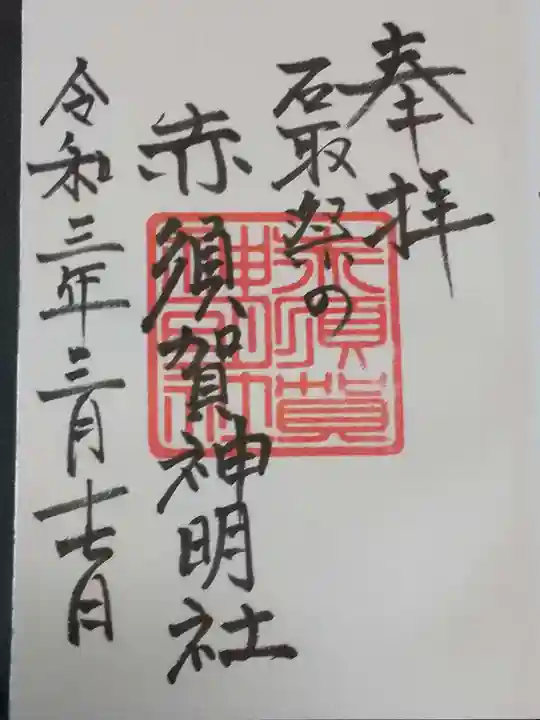 奉拝
石取祭の
赤須賀神明社
令和三年三月十七日